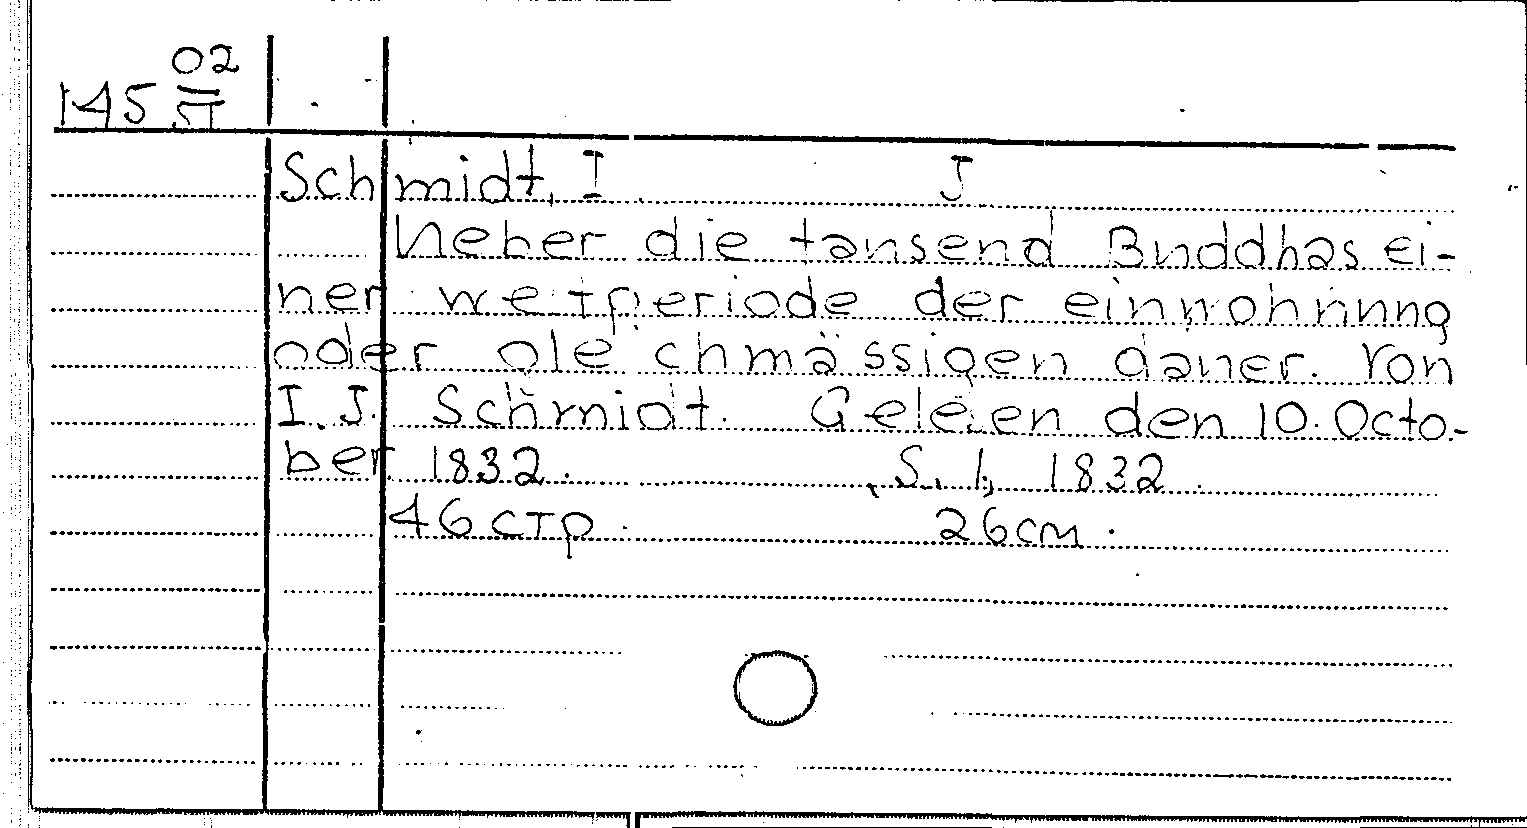 02
145 51
Schmidt, I J
Ueber die tansend Buddhas ei-
ner weltperiode der einwohnnng
oder gleichmässigen daner. Von
I. J. Schmidt. Gelesen den 10. Octo-
ber 1832. S. l, 1832
46 стр. 26 см.